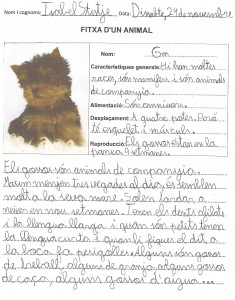 Nom i cognoms: Isabel Data: Dimarts, 24 de novembre
FITXA D'UN ANIMAL
Nom: Gos
Característiques generals: Hi han moltes
races, són mamífers i són animals
de companyia.
Alimentació: Són omnívors.
Desplaçament: A quatre potes. Però
té esquelet i músculs.
Reproducció: Els gossos estan en la
panxa 9 setmanes.
Els gossos són animals de companyia.
Mamen menjen tres vegades al dia, es semblen
molt a la seva mare. Solen tardar a
neixer en nou setmanes. Tenen els dents afilats
i la llengua llarga i quan són petits tenen
la llengua curta i quan li fiques el dit a
la boca fa pesigolles. Alguns són gossos
de treball, alguns de granja, alguns gossos
de caça, alguns gossos d'aigua...